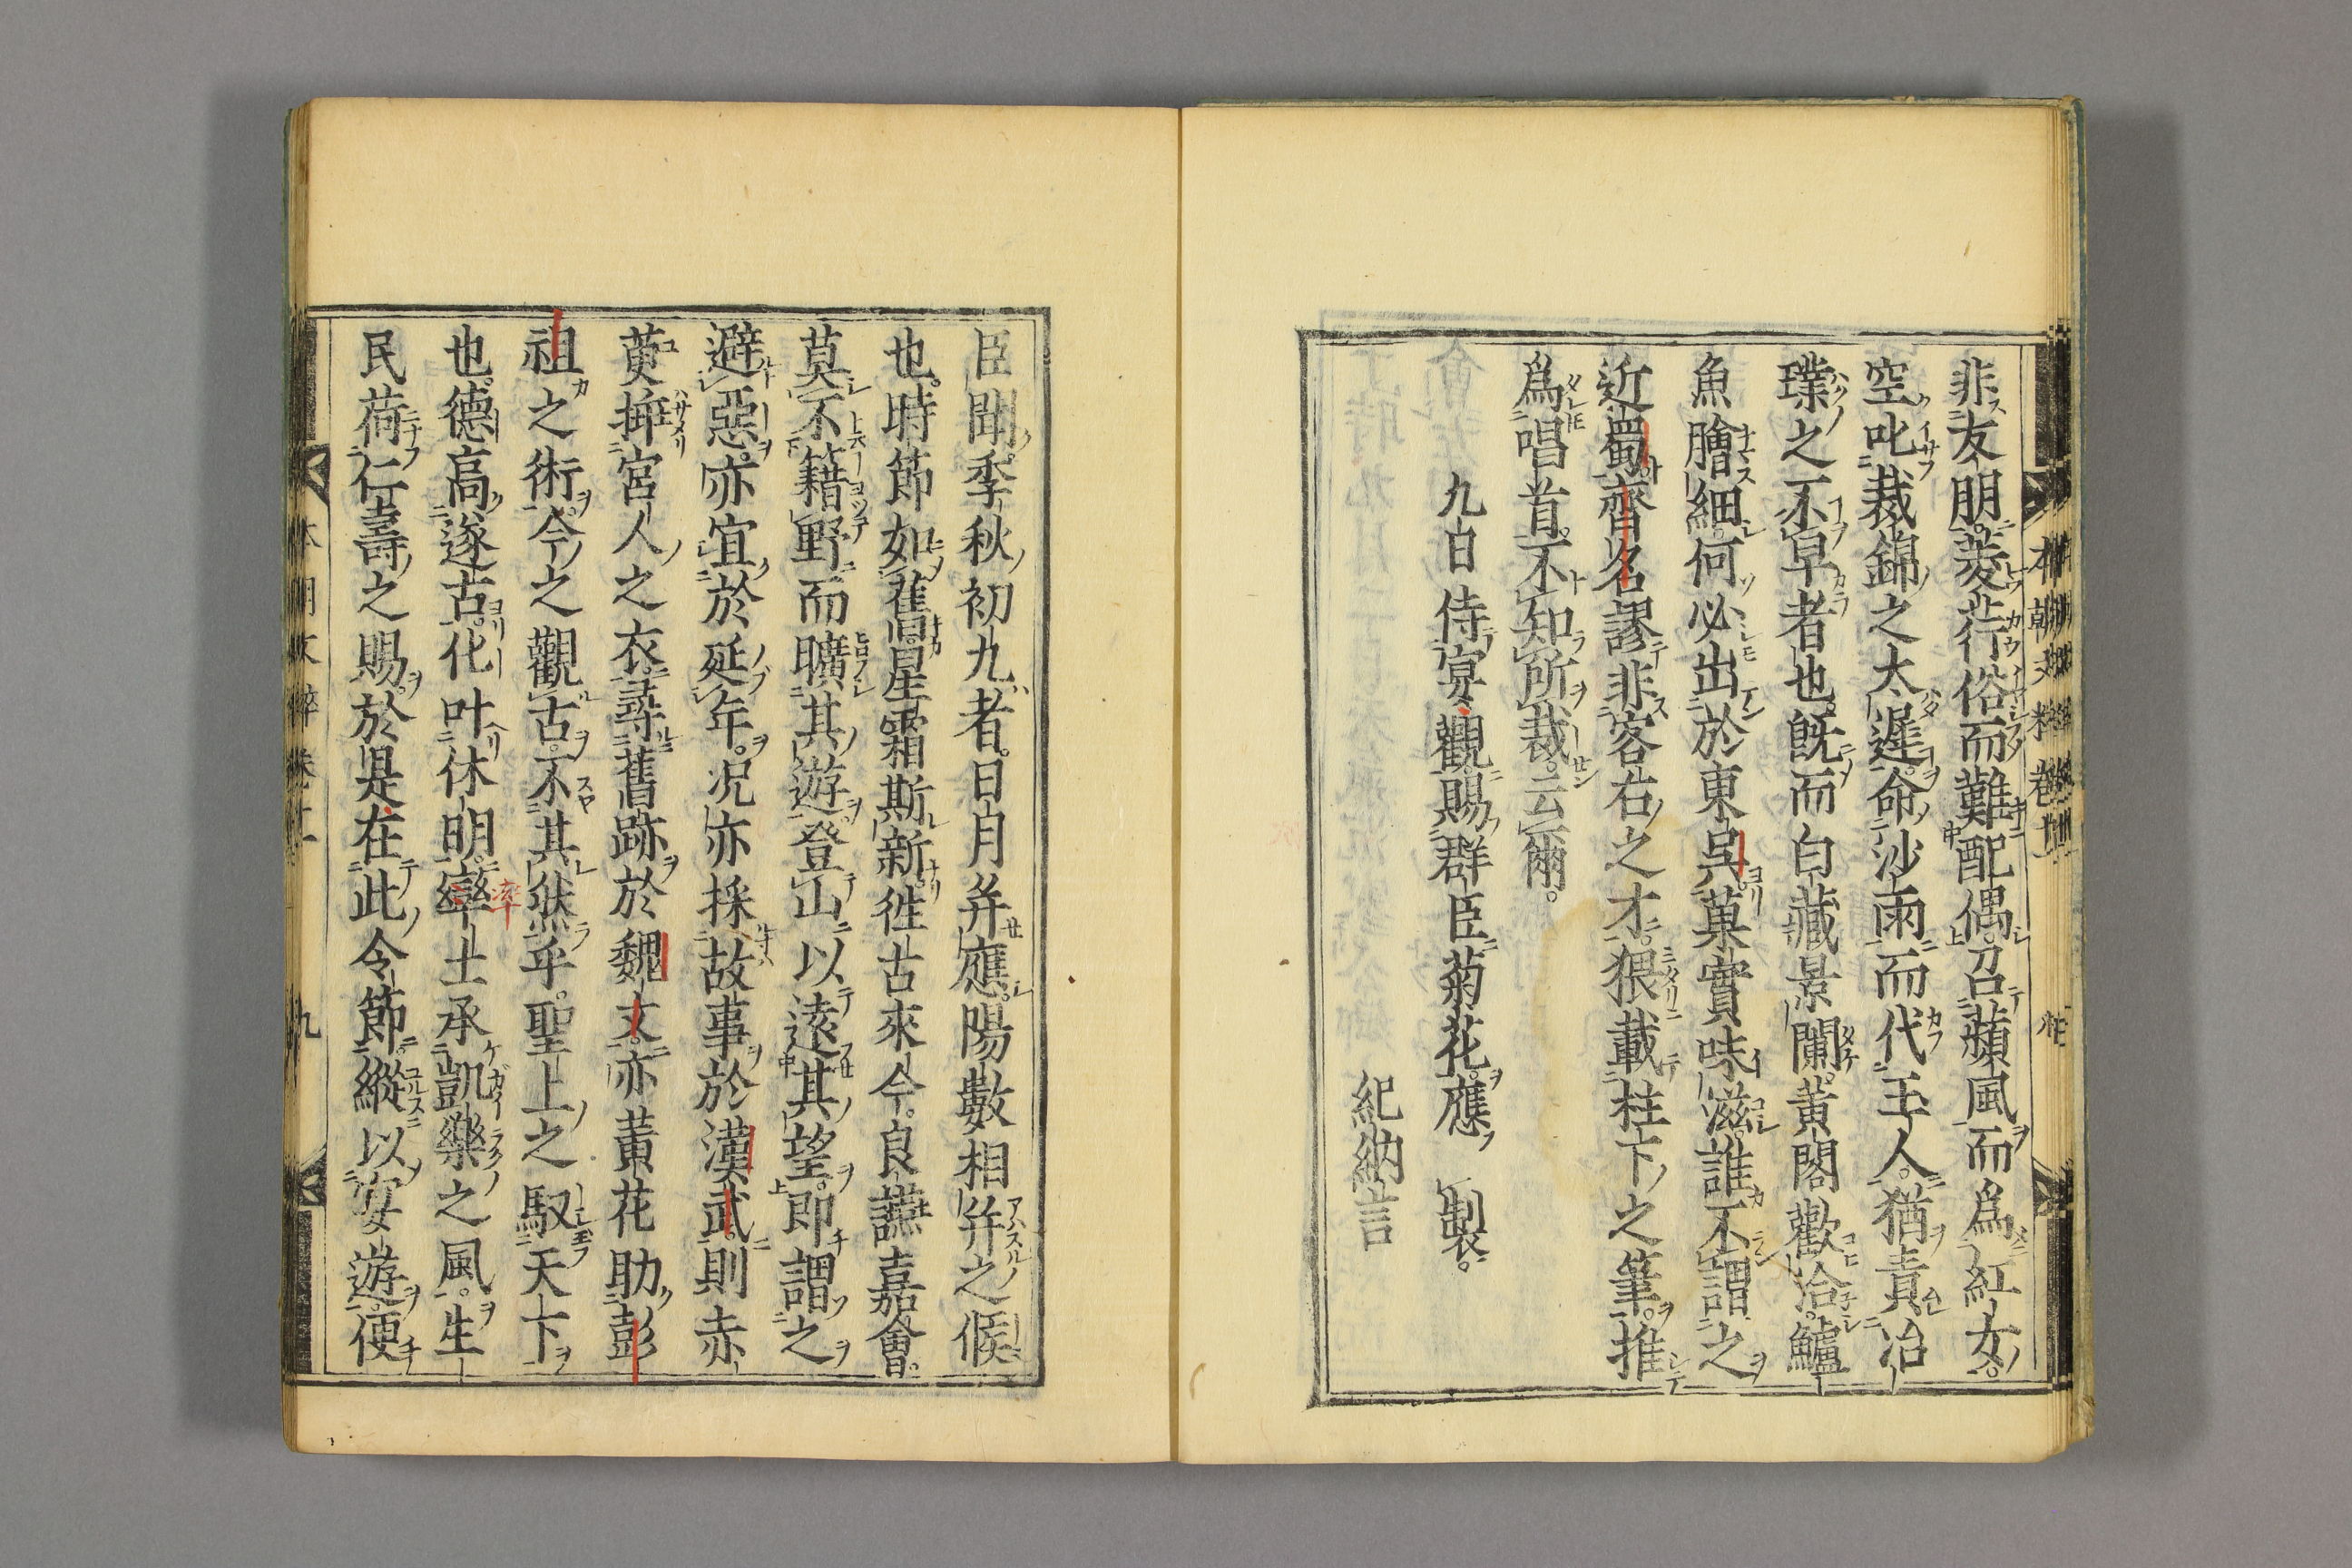 非友朋。菱荇俗而難配偶。召蘋風而爲紅女。
空叱裁錦之太遲。命沙雨而代玉人。猶責冶
璞之不早者也。既而白藏景闌。黄閣歡洽。鱸
魚膾細。何必出於東吳。菓實味滋。誰不謂之
近蜀。齊名謬非客右之才。猥載柱下之筆。推
爲唱首。不知所裁。云爾。
九日侍宴。觀賜群臣菊花。應製。
紀納言
臣聞。季秋初九者。日月并應。陽數相幷之候
也。時節如舊。星霜斯新。徃古來今。良讌嘉會。
莫不籍野而曠其遊。登山以遠其望。即謂之
避惡。亦宜於延年。况亦採故事於漢武。則赤
萸揷宮人之衣。尋舊跡於魏文。亦黄花助彭
祖之術。今之觀古。不其然乎。聖上之馭天下
也。德高遂古。化叶休明。率土承凱樂之風。生
民荷仁壽之賜。於是在此令節。縱以宴遊。便